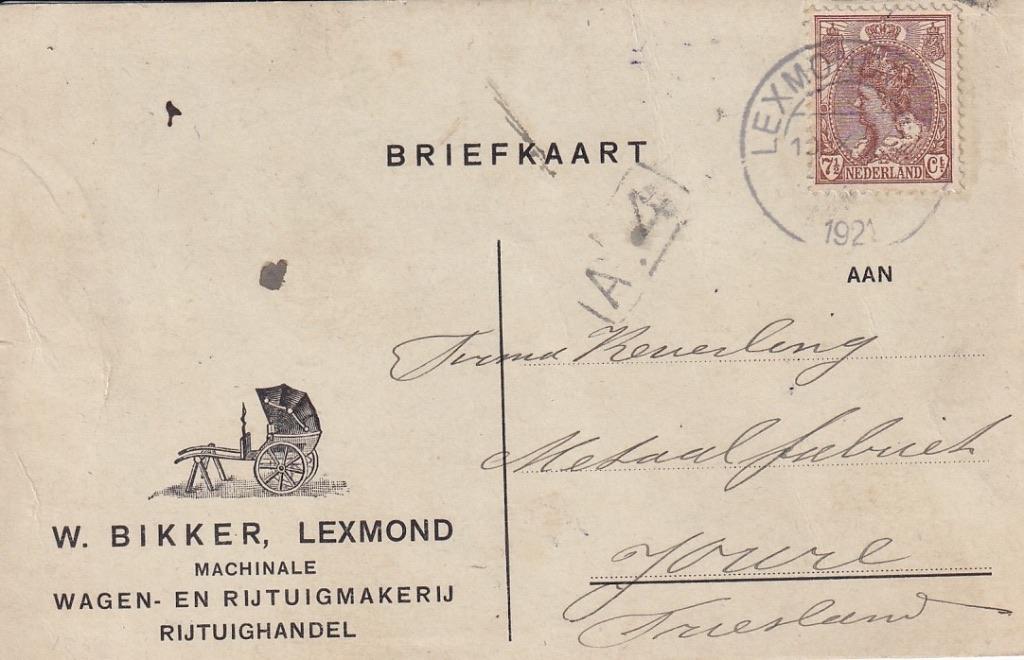 BRIEFKAART
LEXMO
192
7½ NEDERLAND Ct
A. 4
AAN
Firma Keverling
Metaalfabriek
Joure
Friesland
W. BIKKER, LEXMOND
MACHINALE
WAGEN- EN RIJTUIGMAKERIJ
RIJTUIGHANDEL